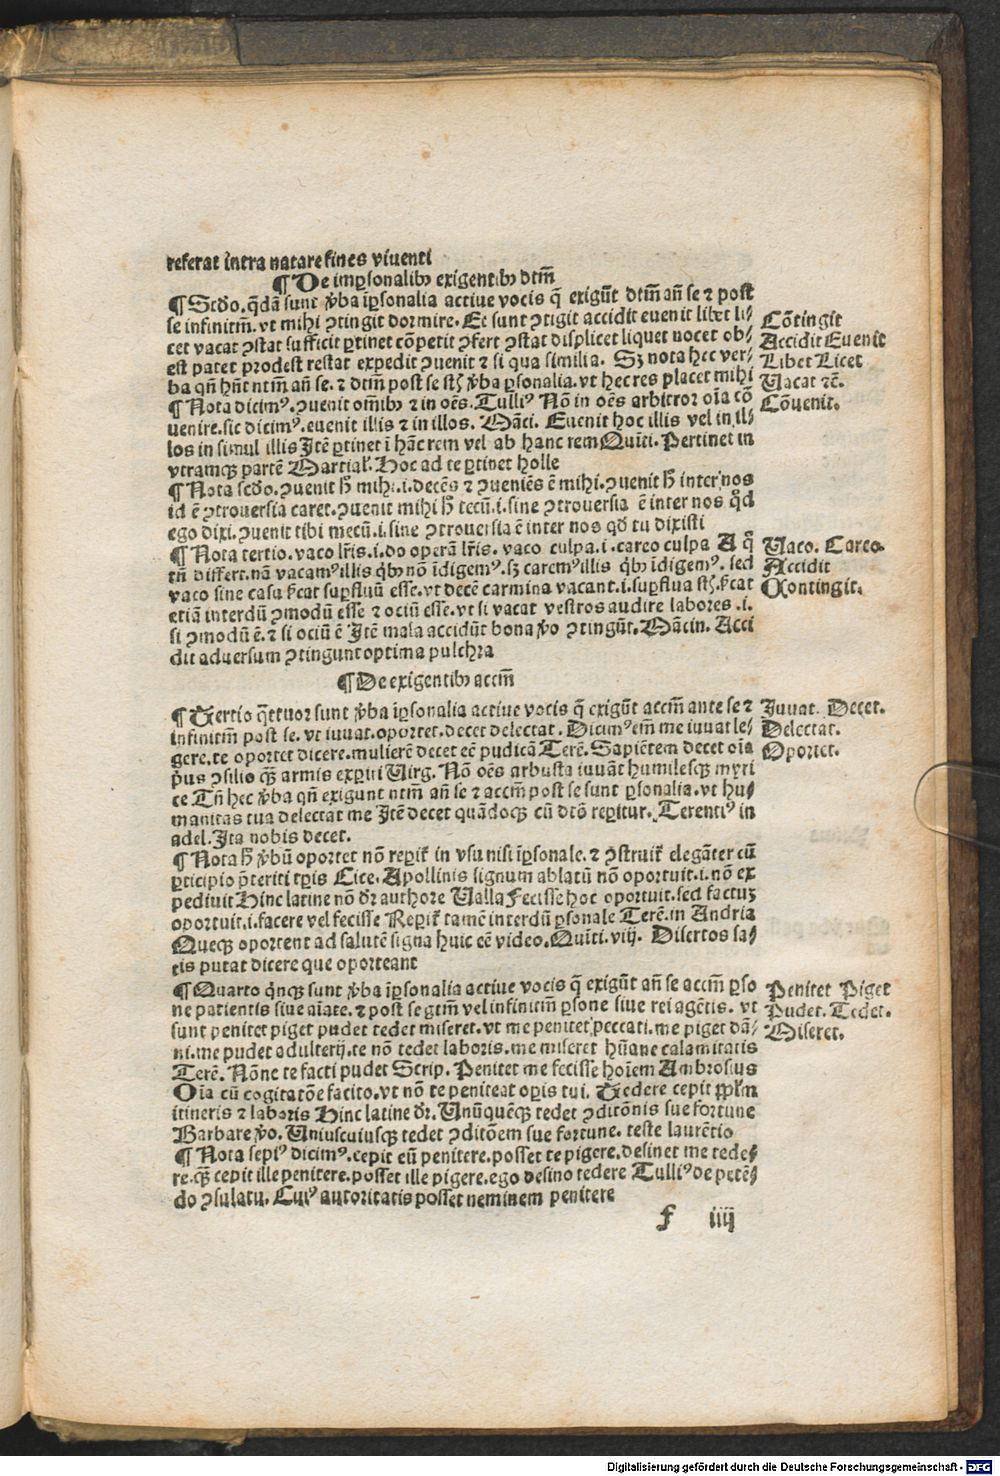 referat intra natare fines viventi
¶ De imꝑsonalibꝫ exigentibꝫ dtm̄
¶ Scd̄o. q̄dā sunt v̄ba īꝑsonalia active vocis q̄ exigūt dtm̄ an̄ se ⁊ post
se infinitm̄. vt mihi ꝯtingit dormire. Et sunt ꝯtigit accidit evenit libet li⸗
cet vacat ꝯstat sufficit ꝑtinet cōpetit ꝯfert ꝯstat displicet liquet nocet ob⸗
est patet prodest restat expedit ꝯuenit ⁊ si qua similia. Sꝫ nota hec ver⸗
ba qn̄ hn̄t ntm̄ an̄ se. ⁊ dtm̄ post se st̄ v̄ba ꝑsonalia. vt hec res placet mihi
¶ Nota dicimꝰ. ꝯuenit om̄ibꝫ ⁊ in oēs. Tulliꝰ Nō in oēs arbitror oīa cō
uenire. sic dicimꝰ. euenit illis ⁊ in illos. Māci. Euenit hoc illis vel in il⸗
los in simul illis Itē ꝑtinet ī hāc rem vel ab hanc rem Quīti. Pertinet in
vtramqꝫ partē Martial. Hoc ad te ꝑtinet holle
¶ Nota sed̄o. ꝯuenit h̄ mihi .i. decēs ⁊ ꝯueniēs ē mihi. ꝯuenit h̄ inter nos
id ē ꝯtrouersia caret. ꝯuenit mihi h̄ tecū .i. sine ꝯtrouersia ē inter nos qd̄
ego dixi. ꝯuenit tibi mecū .i. sine ꝯtrouersia ē inter nos qd̄ tu dixisti
¶ Nota tertio. vaco lr̄is .i. do operā lr̄is. vaco culpa .i. careo culpa A q̄
tn̄ differt. nā vacamꝰ illis qͥbꝫ nō īdigemꝰ. sꝫ caremꝰ illis qͥbꝫ īdigemꝰ. sed
vaco sine casu sīcat suꝑfluū esse. vt decē carmina vacant .i. suꝑflua st̄. sīcat
etiā interdū ꝯmodū esse ⁊ ociū esse. vt si vacat vestros audire labores .i.
si ꝯmodū ē. ⁊ si ociū ē Itē mala accidūt bona v̄o ꝯtingūt. Mācin. Acci
dit adversum ꝯtingunt optima pulchra
¶ De exigentibꝫ accm̄
¶ Tertio q̄ttuor sunt v̄ba īꝑsonalia active vocis q̄ exigūt accm̄ ante se ⁊
infinitm̄ post se. vt iuvat. oportet. decet delectat. Dicimꝰ em̄ me iuvat le⸗
gere. te oportet dicere. mulierē decet eē pudicā Terē. Sapiētem decet oīa
p̄us ꝯsilio qꝫ armis exꝑiri Virg. Nō oēs arbusta iuvāt humilesqꝫ myri
ce Tn̄ hec v̄ba qn̄ exigunt ntm̄ an̄ se ⁊ accm̄ post se sunt ꝑsonalia. vt hu⸗
manitas tua delectat me Itē decet quādoqꝫ cū dtō reꝑitur. Terentiꝰ in
adel. Ita nobis decet.
¶ Nota h̄ v̄bū oportet nō reꝑit̄ in vsu nisi īꝑsonale. ⁊ ꝯstruit̄ elegāter cū
ꝑticipio p̄teriti tꝑis Cice. Apollinis signum ablatū nō oportuit .i. nō ex
pediuit Hinc latine nō dr̄ authore Valla Fecisse hoc oportuit. sed factuꝫ
oportuit .i. facere vel fecisse Reꝑit̄ tamē interdū ꝑsonale Terē. in Andria
Queqꝫ oportent ad salutē signa huic eē video. Quīti. viij. Disertos sa⸗
tis putat dicere que oporteant
¶ Quarto qͥnqꝫ sunt v̄ba īꝑsonalia active vocis q̄ exigūt an̄ se accm̄ ꝑso
ne patientis sive aīate. ⁊ post se gtm̄ vel infinitm̄ ꝑsone siue rei agētis. vt
sunt penitet piget pudet tedet miseret. vt me penitet peccati. me piget dā⸗
ni. me pudet adulterij. te nō tedet laboris. me miseret hūane calamitatis
Terē. Nōne te facti pudet Scrip. Penitet me fecisse hoīem Ambrosius
Oīa cū cogitatōe facito. vt nō te peniteat oꝑis tui. Tedere cepit ꝓplm̄
itineris ⁊ laboris Hinc latine dr̄. Unūquēqꝫ tedet ꝯditōnis sue fortune
Barbare v̄o. Uniuscuiusqꝫ tedet ꝯditōem sue fortune. teste laurētio
¶ Nota sepiꝰ dicimꝰ. cepit eū penitere. posset te pigere. desinet me tede⸗
re. qꝫ cepit ille penitere. posset ille pigere. ego desino tedere Tulliꝰ de petē⸗
do ꝯsulatu. Cuiꝰ autoritatis posset neminem penitere
f iiij
Cōtingit
Accidit Evenit
Libet Licet
Vacat ⁊c̄.
Cōvenit.
Vaco. Careo.
Accidit
Contingit.
Iuvat. Decet.
Delectat.
Oportet.
Penitet Piget
Pudet. Tedet.
Miseret.
Digitalisierung gefördert durch die Deutsche Forschungsgemeinschaft - DFG